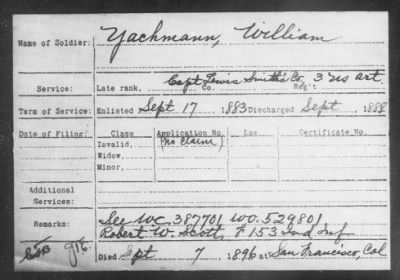 Name of Soldier: Yachmann, William
Service: Late rank, Capt Lewis Smith's Co. 3 US art.
Co. Reg't
Term of Service: Enlisted Sept 17 1883 Discharged Sept 1888
Date of Filing: Class Application No. Law Certificate No.
Invalid, (No Claim)
Widow,
Minor,
Additional
Services:
Remarks: See WC. 387701 WO. 529801
Robert W. Scott, F 153 Ind Inf
Died Sept 7, 1896 at San Francisco, Cal